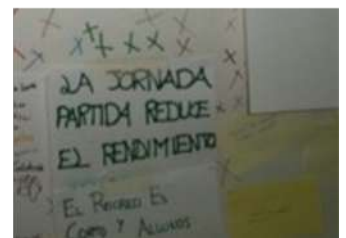 LA JORNADA
PARTIDA REDUCE
EL RENDIMIENTO
EL RECREO ES
CORTO Y ALGUNOS